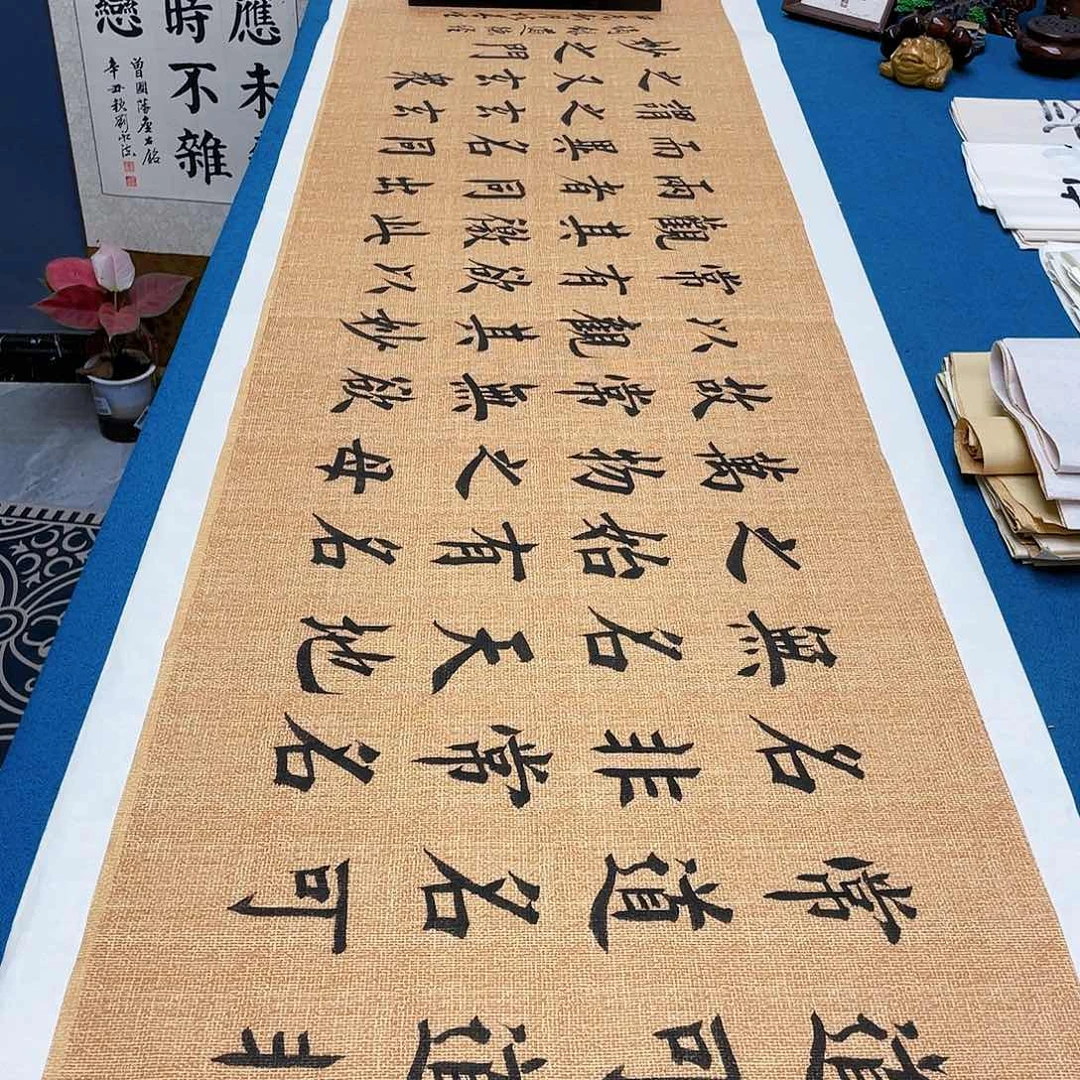 道可道非
常道名可
名非常名
無名天地
之始有名
萬物之母
故常無欲
以觀其妙
常有欲以
觀其徼此
兩者同出
而異名同
謂之玄玄
之又玄衆
妙之門
應未
時不雜
戀
曾國藩座右銘
辛丑秋劉